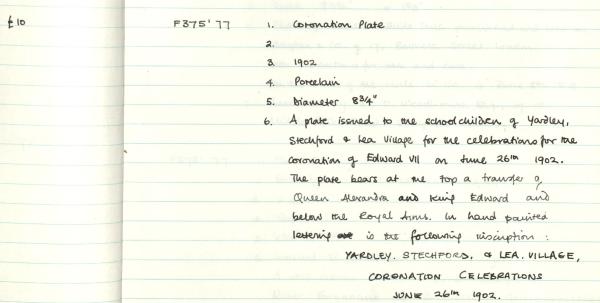 £10 F375'77 1. Coronation Plate
2.
3. 1902
4. Porcelain
5. Diameter 8 3/4"
6. A plate issued to the schoolchildren of Yardley,
Stechford & Lea Village for the celebrations for the
coronation of Edward VII on June 26th 1902.
The plate bears at the top a transfer of
Queen Alexandra and King Edward and
below the Royal Arms. In hand painted
lettering is the following inscription:
YARDLEY. STECHFORD. & LEA. VILLAGE,
CORONATION CELEBRATIONS
JUNE 26TH 1902.